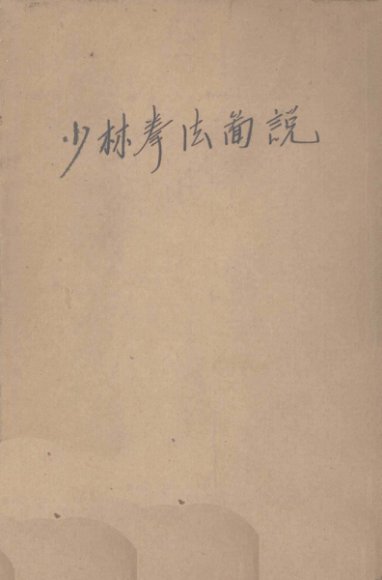 少林拳法简說